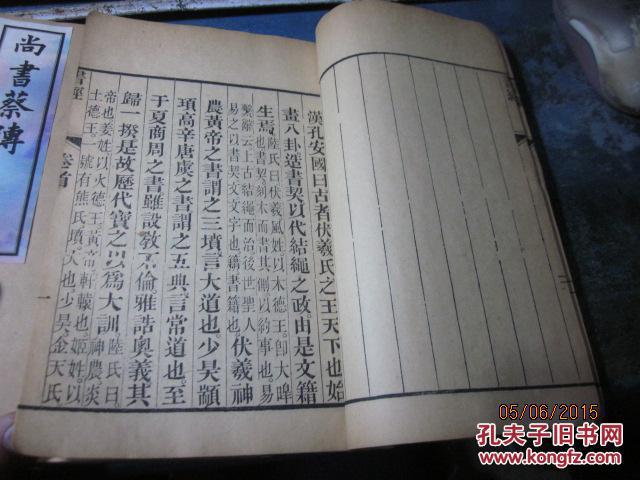 尚書蔡傳
漢孔安國曰古者伏羲氏之王天下也始
畫八卦造書契以代結繩之政由是文籍
生焉陸氏曰伏羲風姓以木德王即大皥
也書契刻木而書其側以約事也易
繫辭云上古結繩而治後世聖人
易之以書契文文字也籍書籍也伏羲神
農黃帝之書謂之三墳言大道也少昊顓
頊高辛唐虞之書謂之五典言常道也至
于夏商周之書雖設教不倫雅誥奧義其
歸一揆是故歷代寶之以爲大訓陸氏曰
神農炎
帝也姜姓以火德王黃帝軒轅也姬姓以
土德王一號有熊氏墳大也少昊金天氏
書經
卷首
一
05/06/2015
孔夫子旧书网
www.kongfz.com